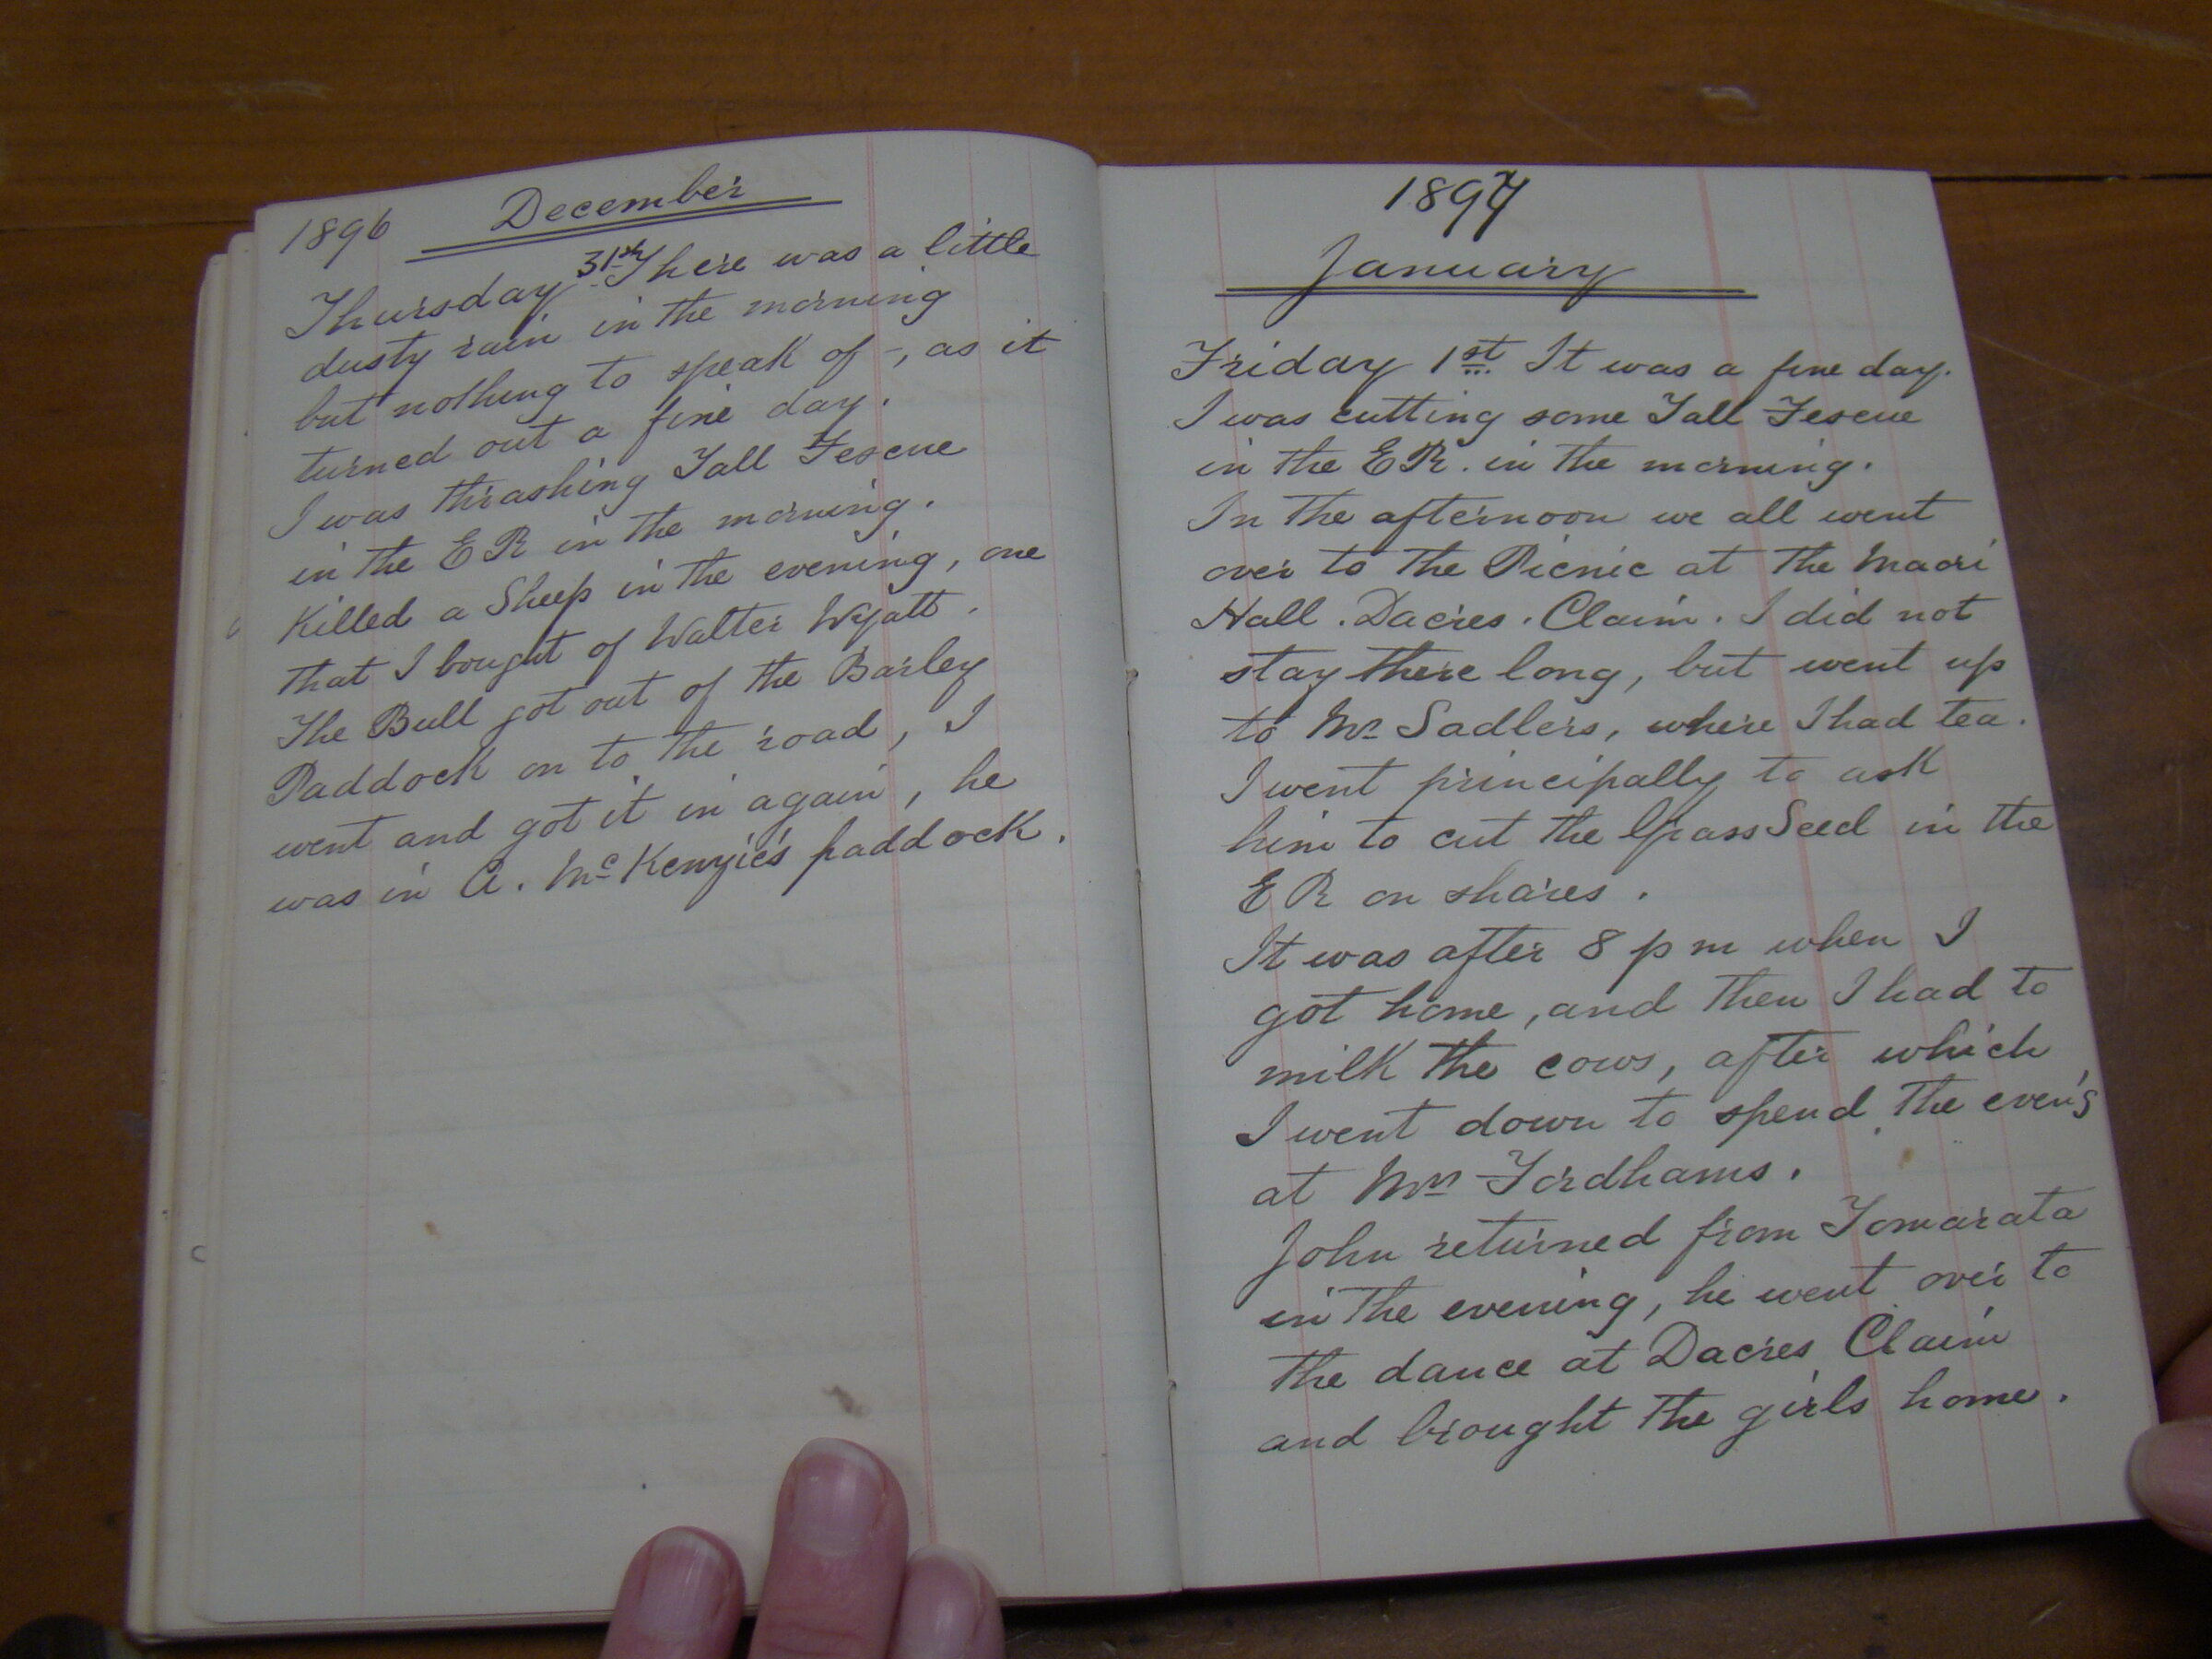 1896 December
Thursday 31st There was a little
dusty rain in the morning
but nothing to speak of -, as it
turned out a fine day.
I was thrashing Tall Fescue
in the ER in the morning.
Killed a Sheep in the evening, one
that I bought of Walter Wyatt.
The Bull got out of the Barley
Paddock on to the road, I
went and got it in again, he
was in A. McKenzie's paddock.
1897
January
Friday 1st It was a fine day.
I was cutting some Tall Fescue
in the ER. in the morning.
In the afternoon we all went
over to the Picnic at the Maori
Hall. Dacres. Claim. I did not
stay there long, but went up
to Mr Sadlers, where I had tea.
I went principally to ask
him to cut the Grass Seed in the
ER on shares.
It was after 8 pm when I
got home, and then I had to
milk the cows, after which
I went down to spend the even'g
at Mrs Fordhams.
John returned from Tomarata
in the evening, he went over to
the dance at Dacres Claim
and brought the girls home.